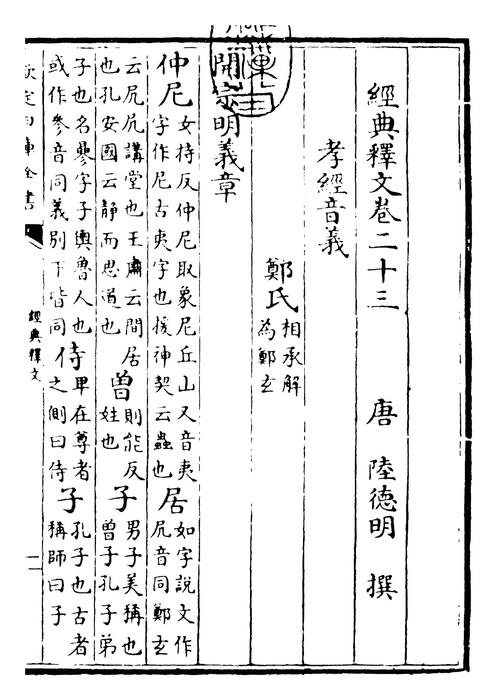 經典釋文卷二十三　唐　陸德明　撰
孝經音義
鄭氏相承解為鄭玄
開宗明義章
仲尼女持反仲尼取象尼丘山又音夷字作尼古夷字也援神契云蟲也居如字說文作凥音同鄭玄
云凥凥講堂也王肅云閒居也孔安國云静而思道也曾則能反姓也子男子美稱也曾子孔子弟
子也名曑字子輿魯人也或作參音同義别下皆同侍卑在尊者之側曰侍子孔子也古者稱師曰子
欽定四庫全書
經典釋文
一